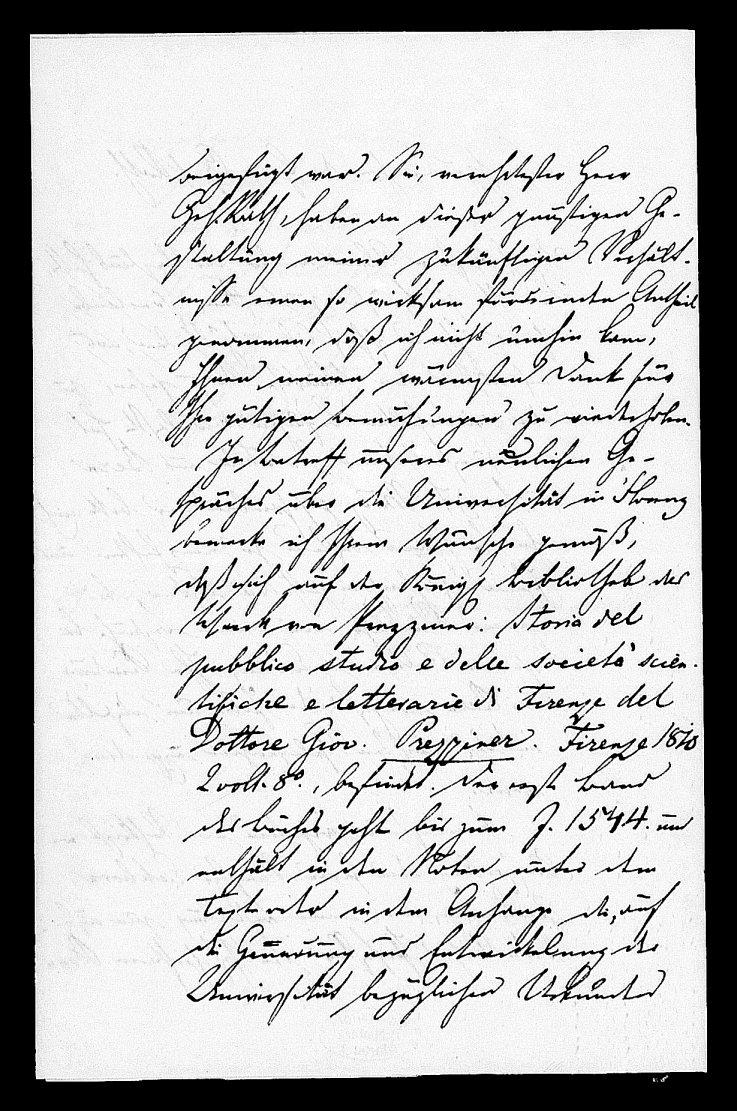 beigefügt war. Sie, verehrtester Herr
Geh. Rath, haben an dieser günstigen Ge-
staltung meiner zukünftigen Verhält-
nisse einen so wirksam fördernden Antheil
genommen, daß ich nicht umhin kann,
Ihnen meinen wärmsten Dank für
Ihre gütigen Bemühungen zu wiederholen.
In Betreff unseres neulichen Ge-
spräches über die Universität in Florenz
bemerke ich Ihrem Wunsche gemäß,
daß sich auf der Königl Bibliothek das
Werk von Prezziner: Storia del
pubblico studio e delle società scien-
tifiche e letterarie di Firenze del
Dottore Giov. Prezziner. Firenze 1810
2 voll. 8°., befindet. Der erste Band
des Buches geht bis zum J. 1544. und
enthält in den Noten unter dem
Text oder in dem Anhange die, auf
die Gründung und Entwickelung der
Universität bezüglichen Urkunden